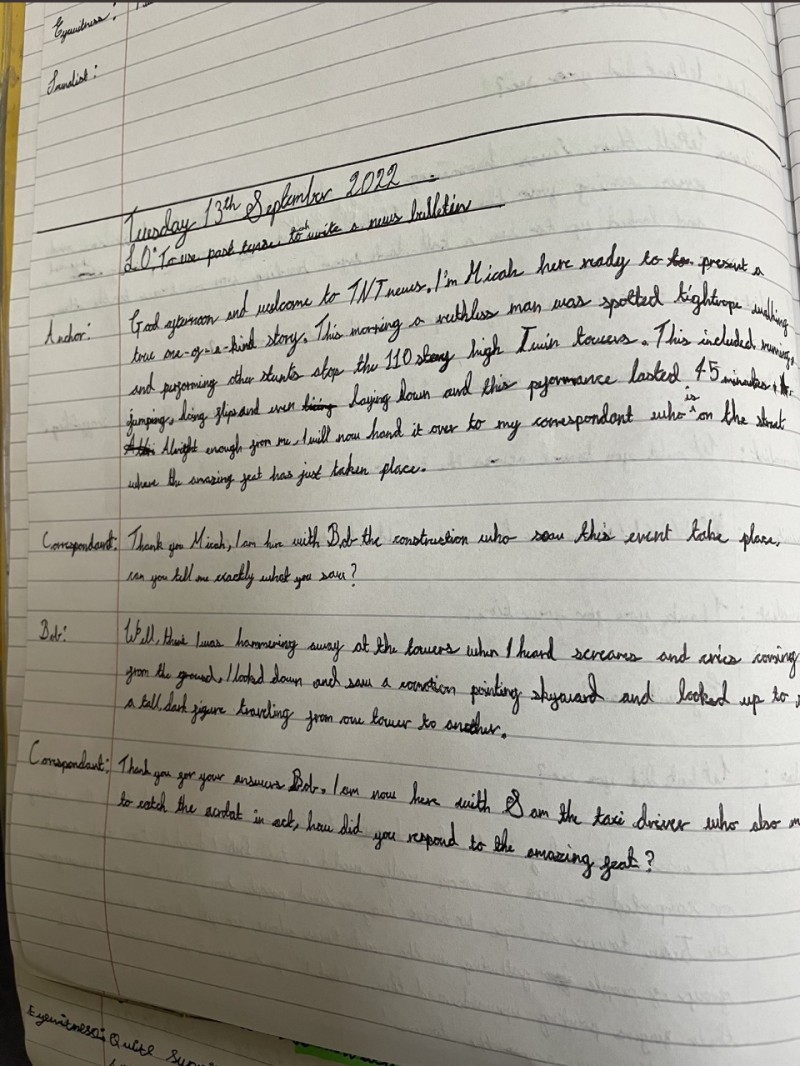 Eyewitness:
Jounalist:
Tuesday 13th September 2022
L.O: To use past tense to write a news bulletin
Anchor: Good afternoon and welcome to TNT news. I'm Micah here ready to to present a
true one-of-a-kind story. This morning a ruthless man was spotted tightrope walking
and performing other stunts atop the 110 story high Twin towers. This included running,
jumping, doing flips and even laying down and this performance lasted 45 minutes.
Alright enough from me, I will now hand it over to my correspondant who is on the street
where the amazing feat has just taken place.
Correspondant: Thank you Micah, I am here with Bob the construction who saw this event take place,
can you tell me exactly what you saw?
Bob: Well, there I was hammering away at the towers when I heard screams and cries coming
from the ground, I looked down and saw a comotion pointing skyward and looked up to
a tall, dark figure traveling from one tower to another.
Correspondant: Thank you for your answers Bob. I am now here with Sam the taxi driver who also
to catch the acrobat in act, how did you respond to the amazing feat?
Eyewitness: Quite